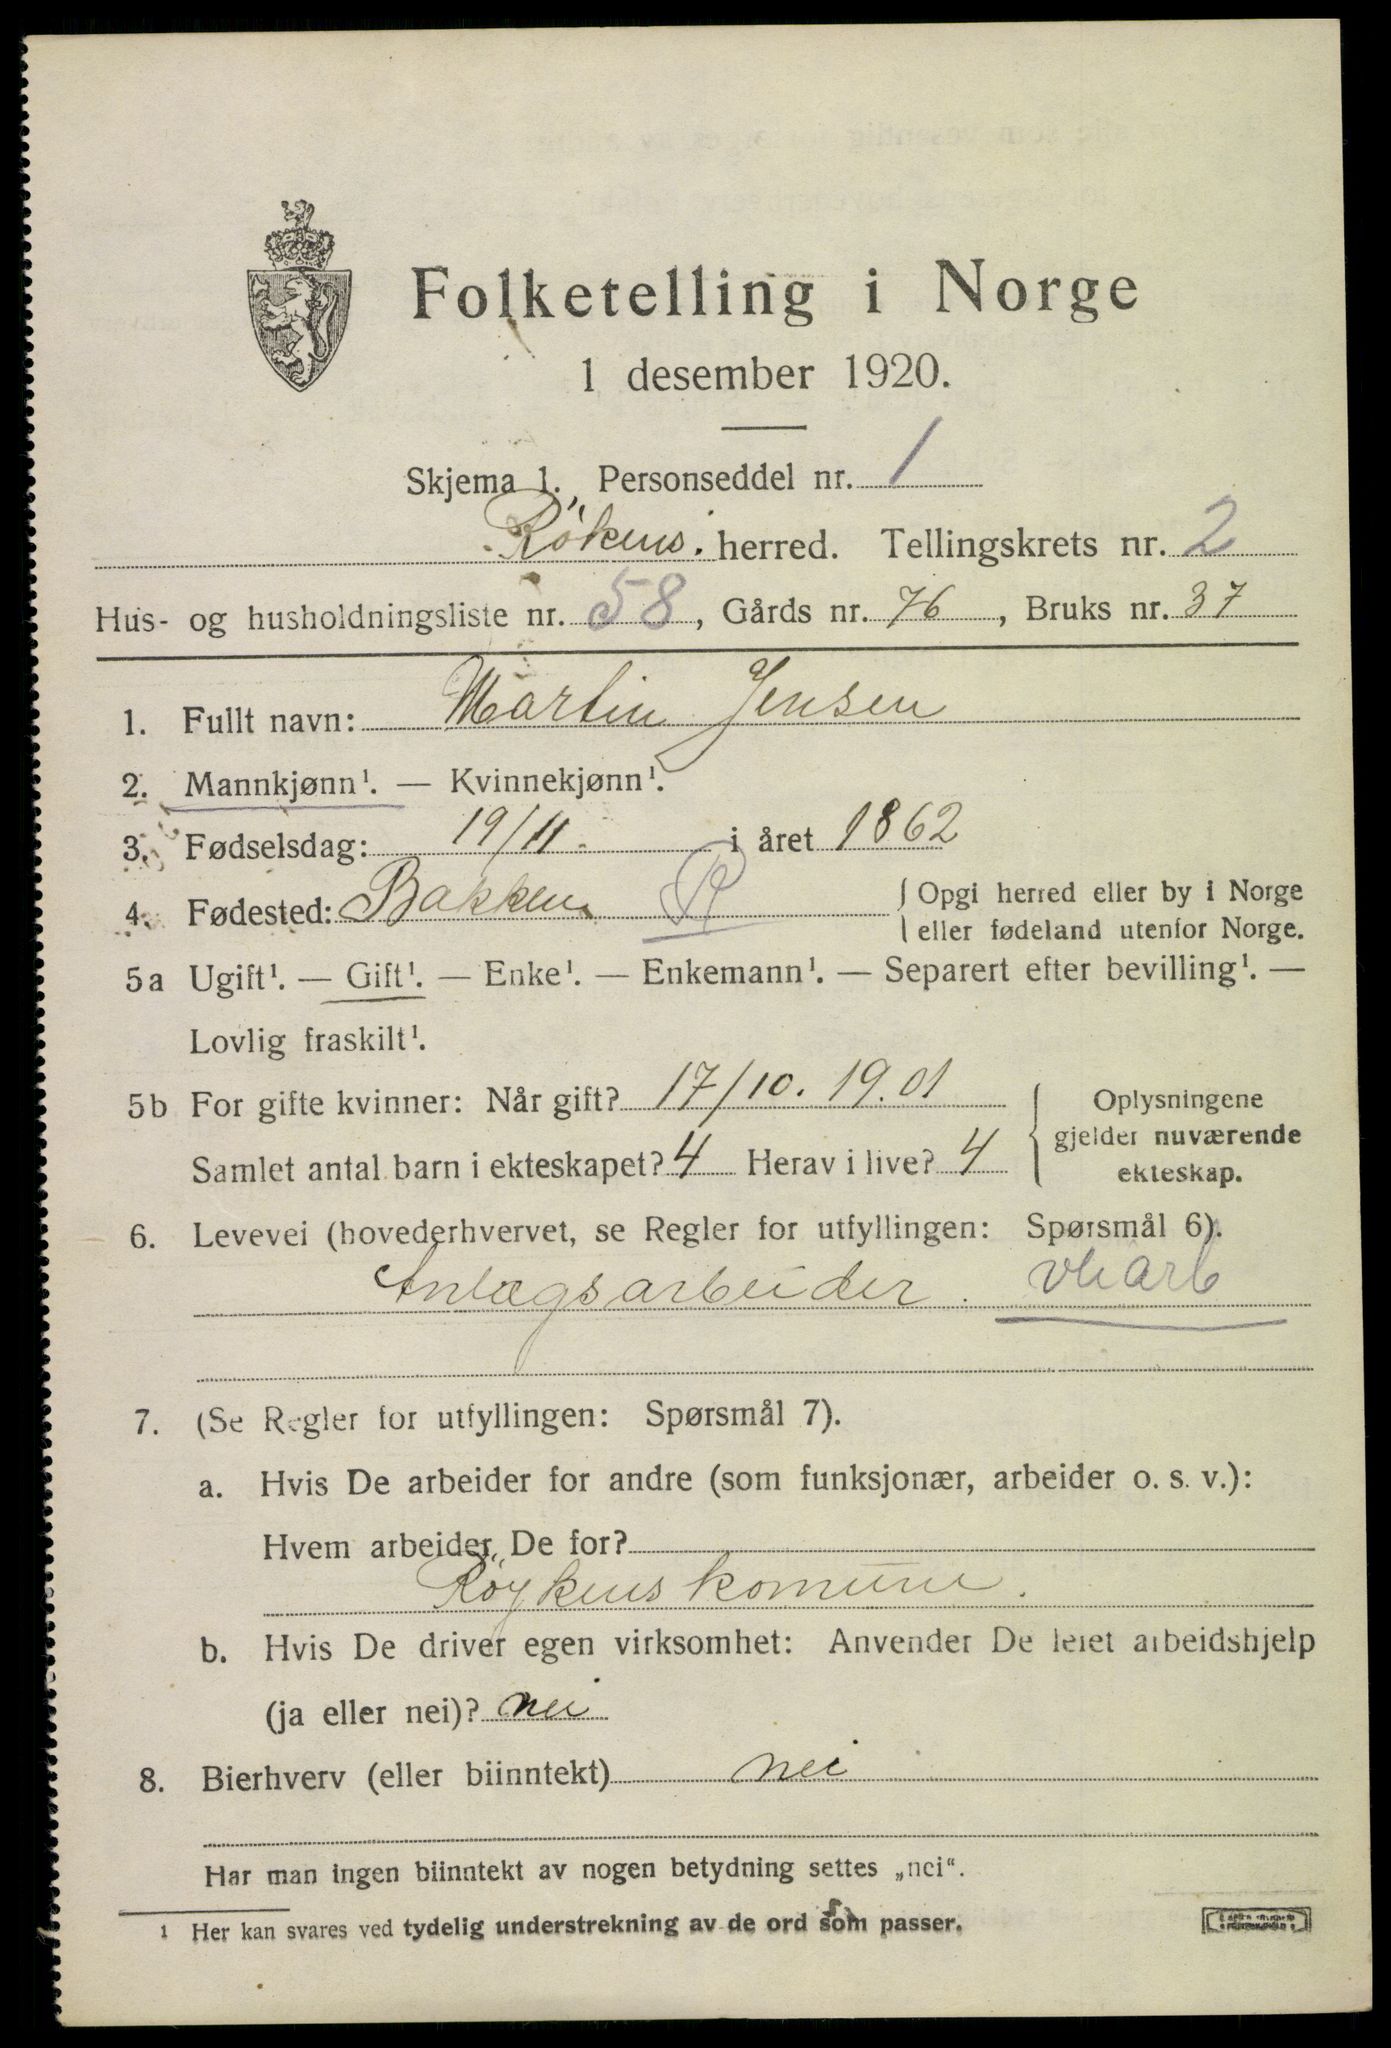 Folketelling i Norge
1 desember 1920.
Skjema 1. Personseddel nr. 1
Røkens herred. Tellingskrets nr. 2
Hus- og husholdningsliste nr. 58, Gårds nr. 76, Bruks nr. 37
1. Fullt navn: Martin Jensen
2. Mannkjønn¹. — Kvinnekjønn¹.
3. Fødselsdag: 19/11. i året 1862
4. Fødested: Bakken R { Opgi herred eller by i Norge
eller fødeland utenfor Norge.
5a Ugift¹. — Gift¹. — Enke¹. — Enkemann¹. — Separert efter bevilling¹. —
Lovlig fraskilt¹.
5b For gifte kvinner: Når gift? 17/10. 19.01
Samlet antal barn i ekteskapet? 4 Herav i live? 4
Oplysningene
gjelder nuværende
ekteskap.
6. Levevei (hovederhvervet, se Regler for utfyllingen: Spørsmål 6).
Anlægsarbeider. vei arb
7. (Se Regler for utfyllingen: Spørsmål 7).
a. Hvis De arbeider for andre (som funksjonær, arbeider o. s. v.):
Hvem arbeider De for?
Røykens komune.
b. Hvis De driver egen virksomhet: Anvender De leiet arbeidshjelp
(ja eller nei)? nei
8. Bierhverv (eller biinntekt) nei
Har man ingen biinntekt av nogen betydning settes „nei“.
¹ Her kan svares ved tydelig understrekning av de ord som passer.